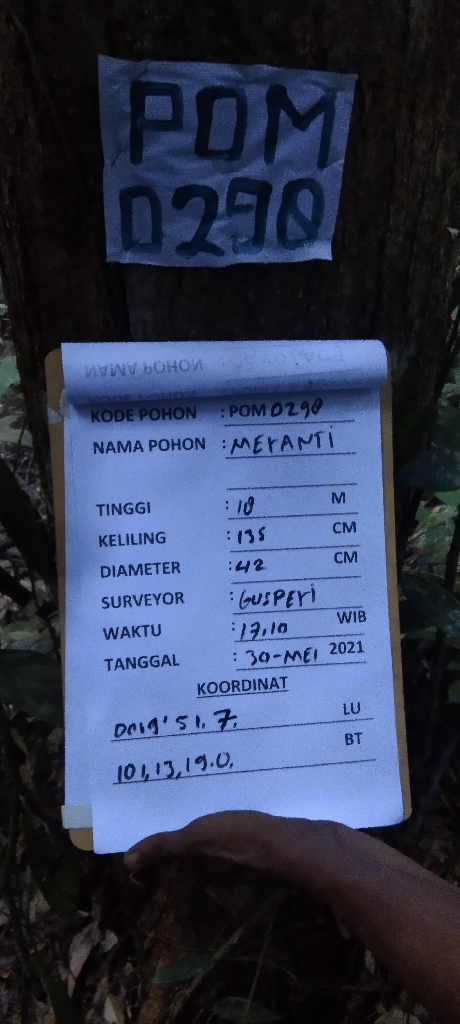 POM
0290
NAMA POHON
KODE POHON : POM 0290
NAMA POHON : MERANTI
TINGGI : 18 M
KELILING : 135 CM
DIAMETER : 42 CM
SURVEYOR : GUSPERI
WAKTU : 17.10 WIB
TANGGAL : 30-MEI 2021
KOORDINAT
0019'51.7. LU
101,13,19.0. BT